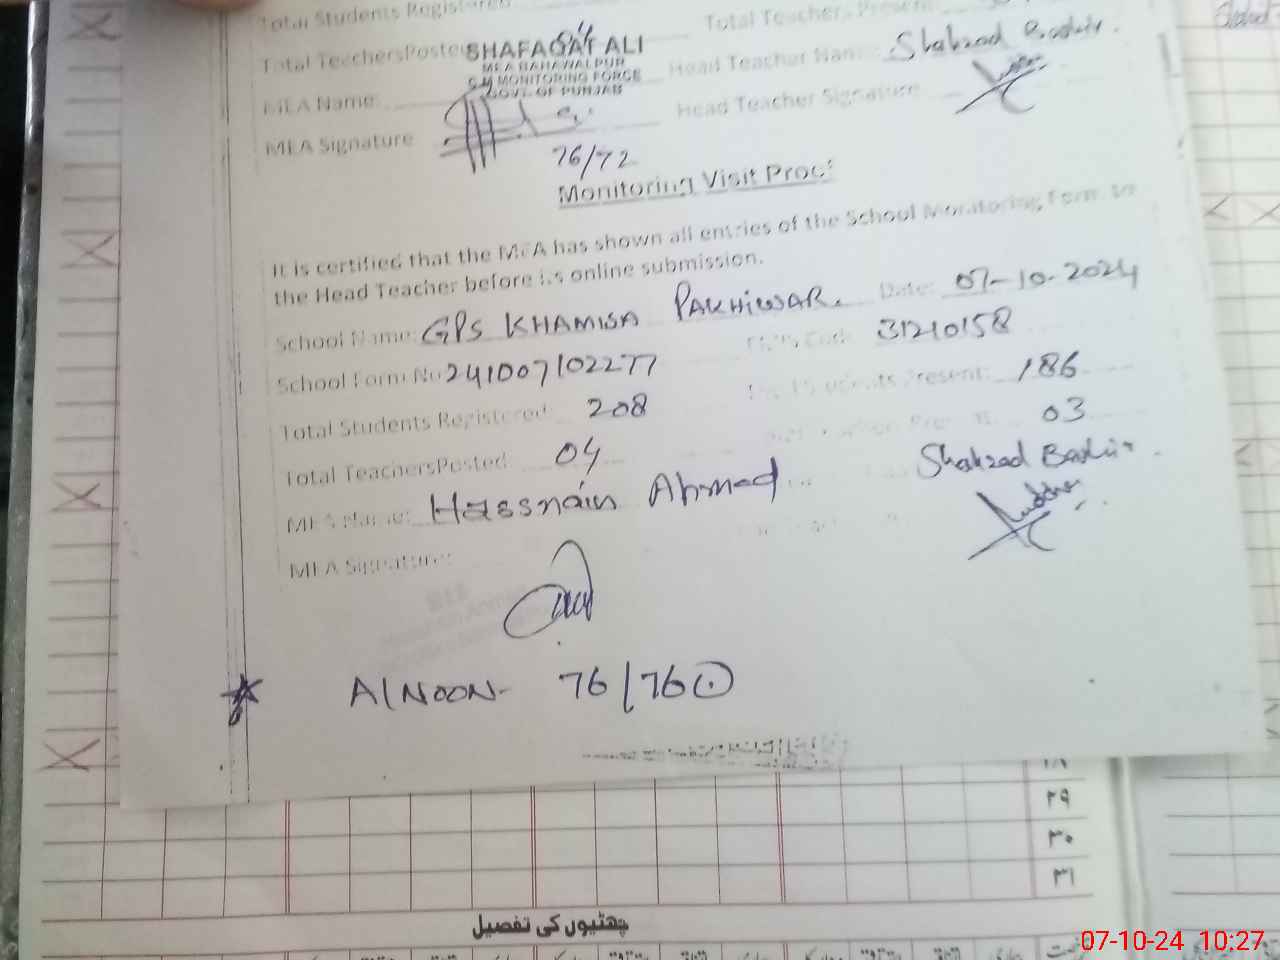 Total Students Registered
Total Teachers Present
Total TeachersPosted 04
SHAFAQAT ALI
MEA BAHAWALPUR
CM MONITORING FORCE
GOVT. OF PUNJAB
Head Teacher Name: Shahzad Bashir.
MEA Name:
Head Teacher Signature
MEA Signature
76/72
Monitoring Visit Proof
It is certified that the MEA has shown all entries of the School Monitoring Form to
the Head Teacher before its online submission.
School Name: GPS KHAMISA PAKHIWAR. Date: 07-10-2024
School Form No 241007102277 Code 31210158
Total Students Registered: 208 Students Present: 186
Total TeachersPosted: 04 03
MEA Name: Hassnain Ahmed Shahzad Bashir.
MEA Signature:
A/NOON- 76/76
٢٩
٣٠
٣١
چھٹیوں کی تفصیل
07-10-24 10:27